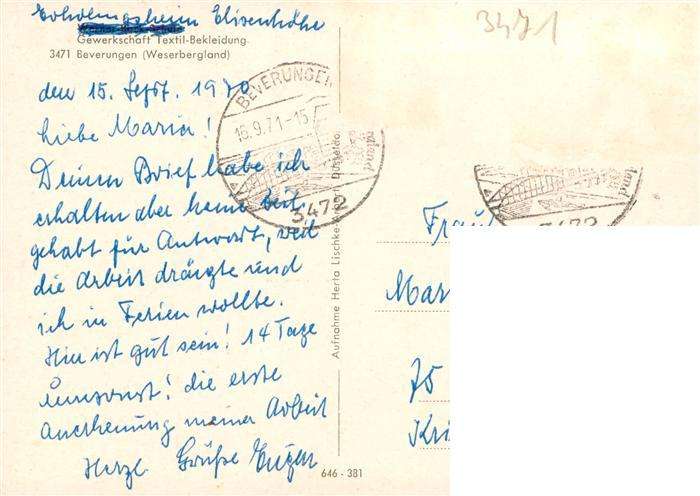 Erholungsheim Elisenhöhe
Gewerkschaft Textil-Bekleidung
3471 Beverungen (Weserbergland)
3471
den 15. Sept. 1970
BEVERUNGEN
16.9.71-15
3472
Liebe Maria!
Deinen Brief habe ich
erhalten aber keine Zeit
gehabt für Antwort, weil
die Arbeit drängte und
ich in Ferien wollte.
Hier ist gut sein! 14 Tage
umsonst! die erste
Anerkennung meiner Arbeit
Herzl. Grüße Eugen
Aufnahme Herta Lischke- Düsseldo
646 - 381
3472
Frau
Mar
75
Kri